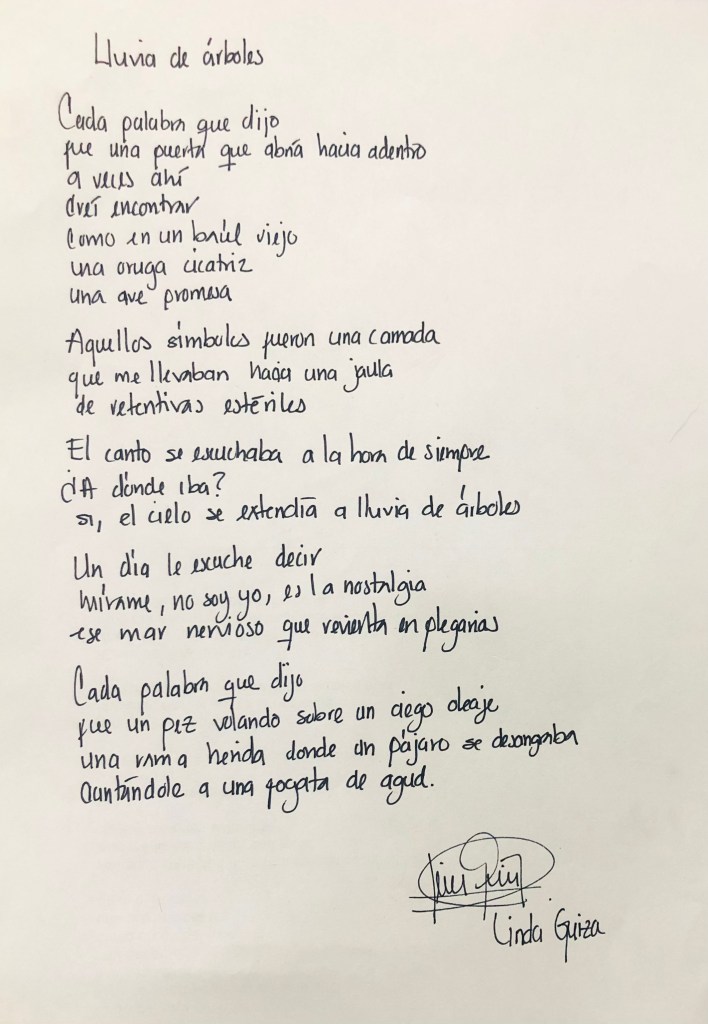 Lluvia de árboles
Cada palabra que dijo
fue una puerta que abría hacia adentro
a veces ahí
creí encontrar
como en un baúl viejo
una oruga cicatriz
una ave promesa
Aquellos símbolos fueron una camada
que me llevaban hacia una jaula
de retentivas estériles
El canto se escuchaba a la hora de siempre
¿A dónde iba?
si, el cielo se extendía a lluvia de árboles
Un día le escuche decir
mírame, no soy yo, es la nostalgia
ese mar nervioso que revienta en plegarias
Cada palabra que dijo
fue un pez volando sobre un ciego oleaje
una rama herida donde un pájaro se desangraba
cantándole a una fogata de agua.
Linda Guiza